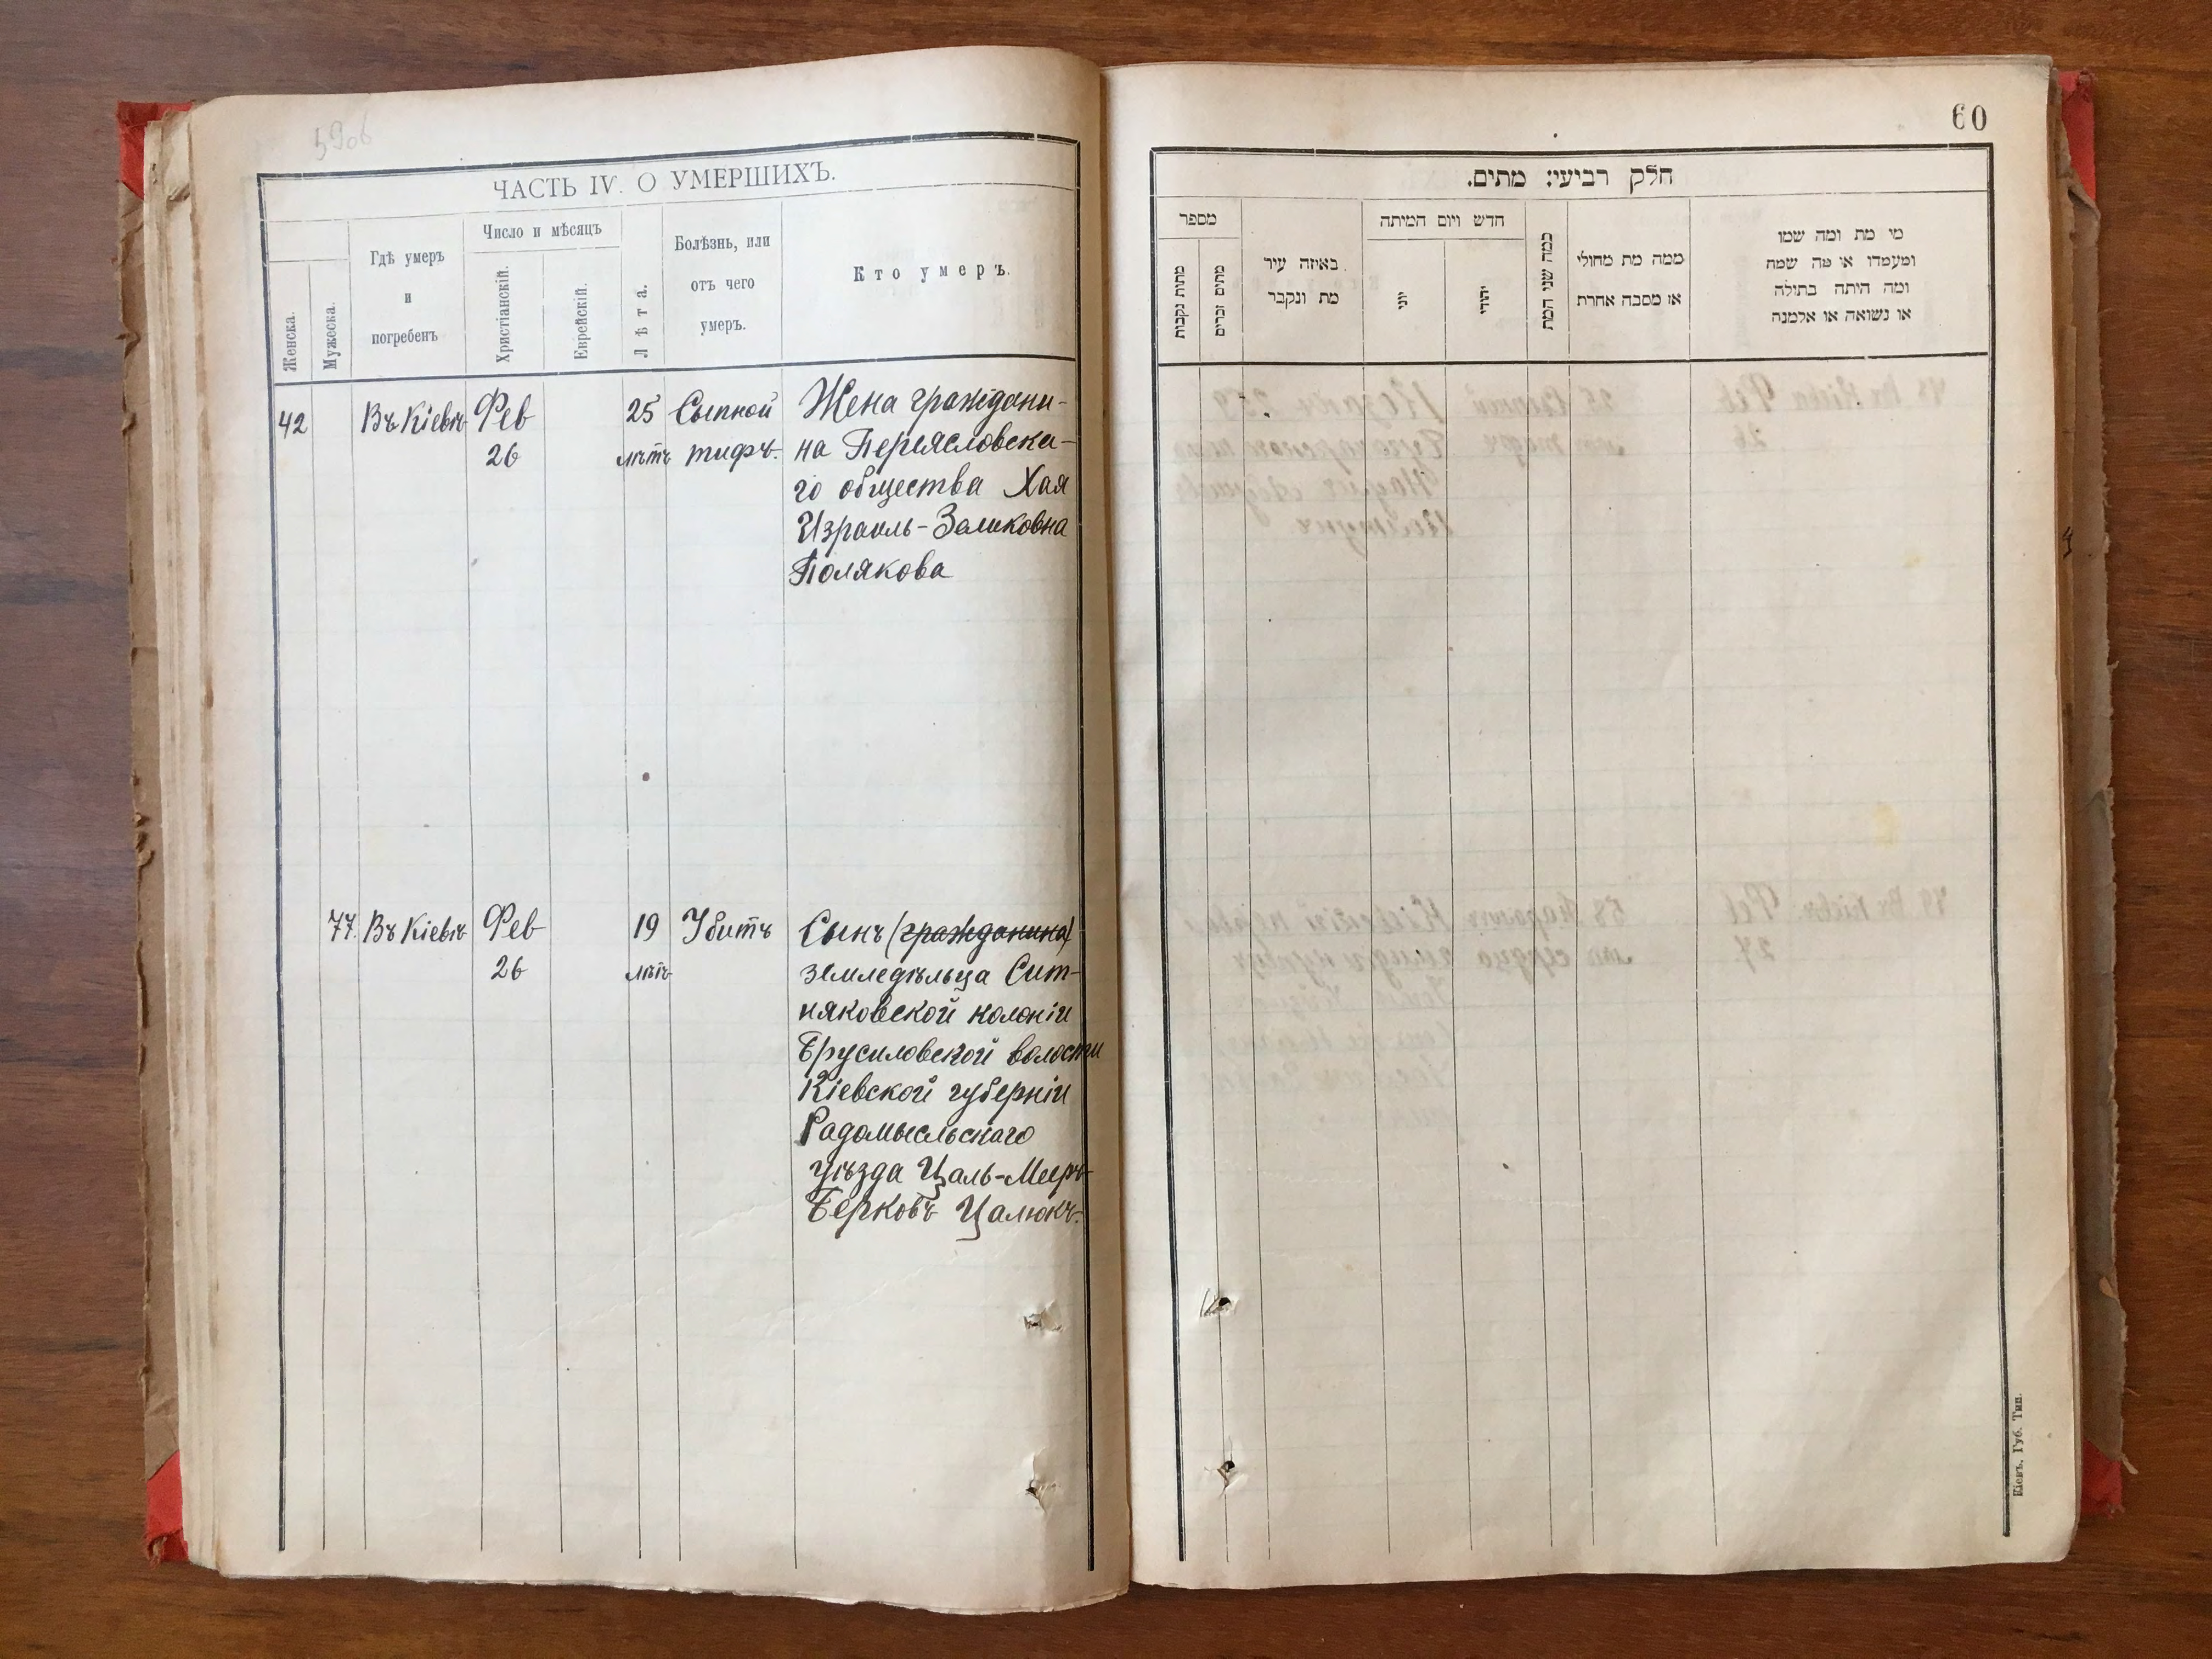 5906
ЧАСТЬ IV. О УМЕРШИХЪ.
Женска.
Мужеска.
Гдѣ умеръ
и
погребенъ
Число и мѣсяцъ
Христіанскій.
Еврейскій.
Лѣта.
Болѣзнь, или
отъ чего
умеръ.
Кто умеръ.
42
Въ Кіевѣ
Фев
26
25
лѣтъ
Сыпной
тифъ.
Жена граждани-
на Переясловска-
го общества Хая
Израиль-Заликовна
Полякова
77.
Въ Кіевѣ
Фев
26
19
лѣтъ
Убитъ
Сынъ (гражданина)
земледѣльца Сит-
няковской колоніи
Брусиловской волости
Кіевской губерніи
Радомысльскаго
уѣзда Цаль-Мееръ
Берковъ Цалюкъ.
60
חלק רביעי: מתים.
מספר
מתות נקבות
מתים זכרים
באיזה עיר
מת ונקבר
חדש ויום המיתה
יוני
יהודי
כמה שני המת
ממה מת מחולי
או מסבה אחרת
מי מת ומה שמו
ומעמדו או מה שמה
ומה היתה בתולה
או נשואה או אלמנה
Кіевъ, Губ. Тип.